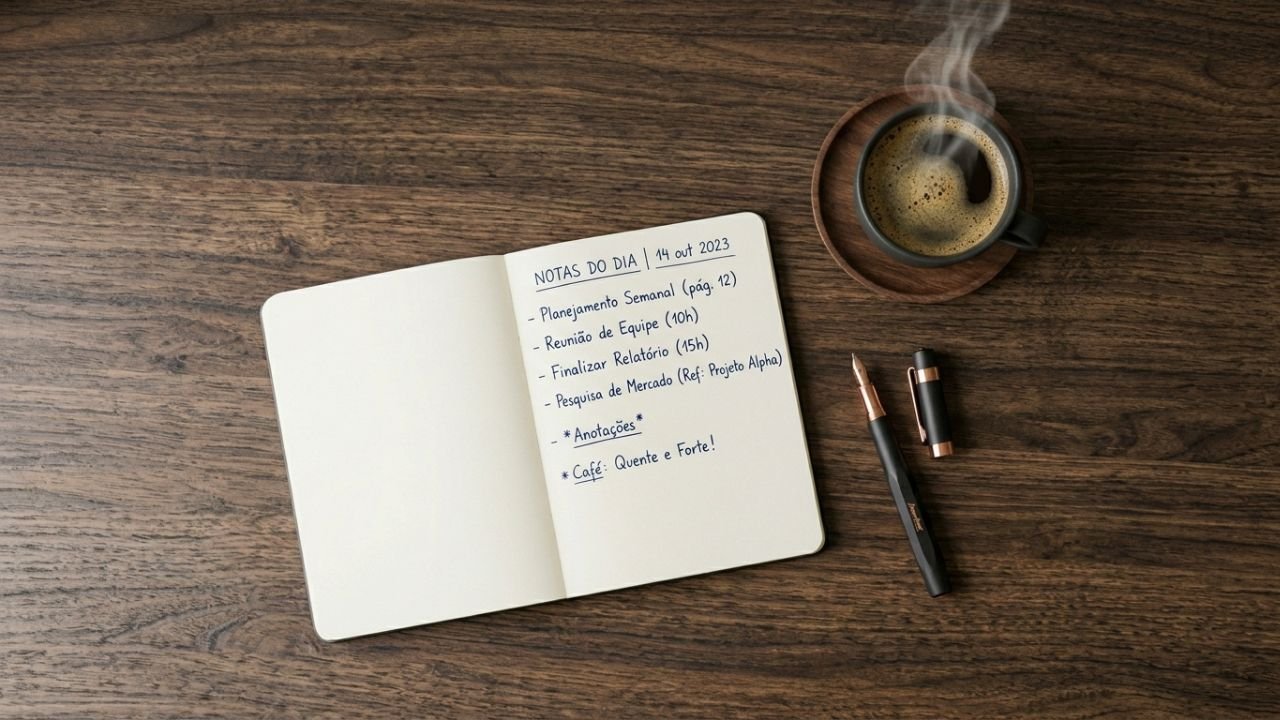 NOTAS DO DIA | 14 out 2023
- Planejamento Semanal (pág. 12)
- Reunião de Equipe (10h)
- Finalizar Relatório (15h)
- Pesquisa de Mercado (Ref: Projeto Alpha)
- *Anotações*
*Café: Quente e Forte!